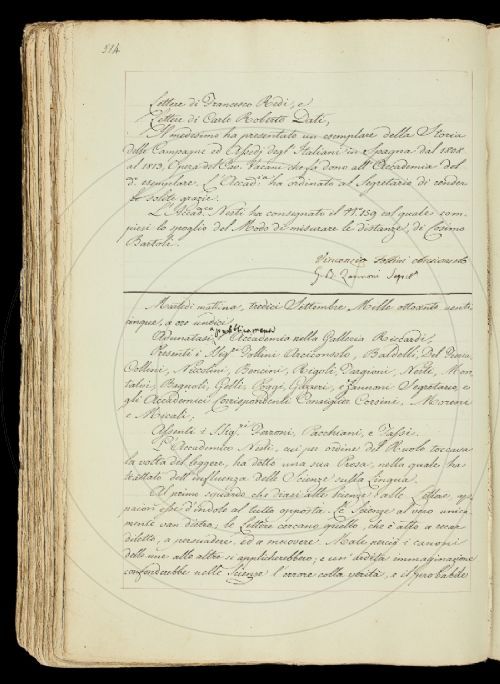 314
Lettere di Francesco Redi, e
Lettere di Carlo Roberto Dati,
Il medesimo ha presentato un esemplare della Storia
delle Campagne ed Assedj degl'Italiani in Spagna dal 1808
al 1813, Opera del Cav. Vacani che fa dono all'Accademia del
d.º esemplare. L'Accad.ª ha ordinato al Segretario di render-
le solite grazie.
L'Accad.co Nesti ha consegnato il N.º 139 col quale com-
piesi lo spoglio del Modo di misurare le distanze, di Cosimo
Bartoli.
G. B. Zannoni Segr.º
Martedì mattina, tredici Settembre Mille ottocento venti-
cinque, a ore undici.
Adunatasi pubblicamente l'Accademia nella Galleria Riccardi,
Presenti i Sig.ri Follini Arciconsolo, Baldelli, Del Furia,
Collini, Niccolini, Bencini, Rigoli, Targioni, Nesti, Mon-
talvi, Bagnoli, Gelli, Poggi, Gazzeri, e Zannoni Segretario, e
gli Accademici Corrispondenti Consiglier Corsini, Moreni
e Micali;
Assenti i Sig.ri Ferroni, Pacchiani, e Tassi.
L'Accademico Nesti, cui per ordine del Ruolo toccava
la volta del leggere, ha detto una sua Prosa, nella quale ha
trattato dell'influenza delle Scienze sulla Lingua.
Al primo sguardo che diasi alle Scienze e alle Lettere, ap-
paion esse dirò al tutto opposte. Le Scienze al vero unica-
mente van dietro; le Lettere cercano quello, che è atto a recar
diletto, a persuadere, ed a muovere. Male perciò i canoni
delle une alle altre si applicherebbero; e un'ardita immaginazione
confonderebbe nelle Scienze l'errore colla verità, e il probabile